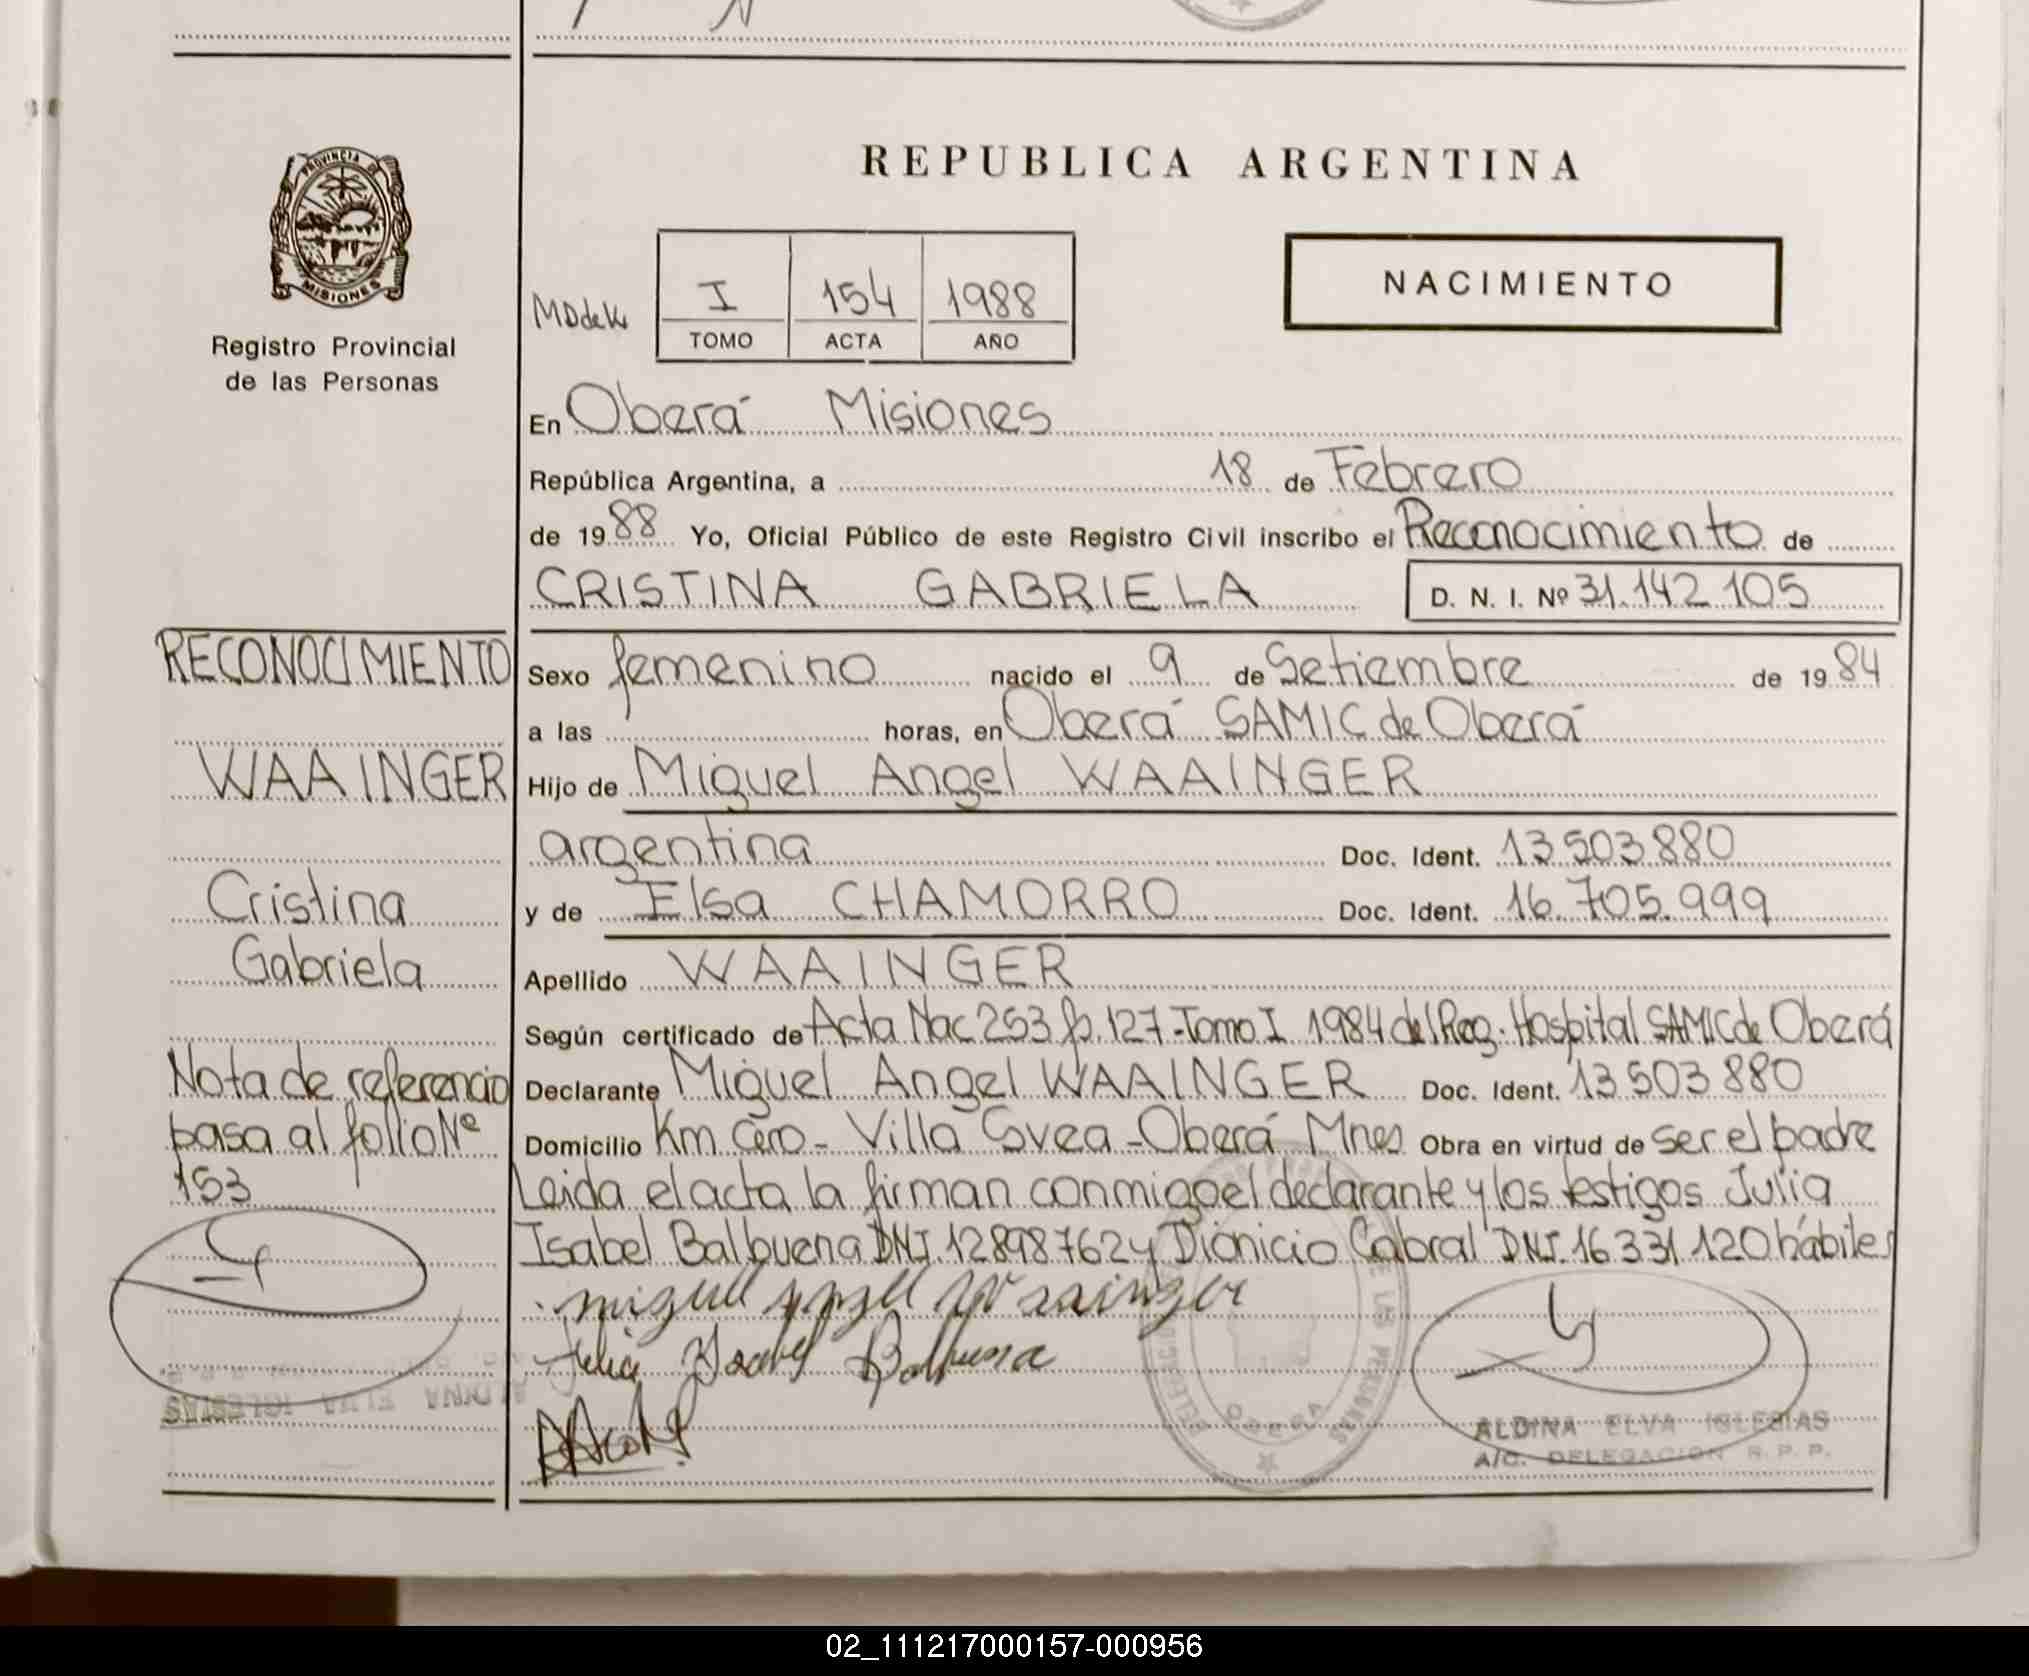 PROVINCIA DE
MISIONES
Registro Provincial
de las Personas
REPUBLICA ARGENTINA
NACIMIENTO
I 154 1988
TOMO ACTA AÑO
En Oberá Misiones
República Argentina, a 18 de Febrero
de 1988 Yo, Oficial Público de este Registro Civil inscribo el Reconocimiento de
CRISTINA GABRIELA D. N. I. Nº 31.142.105
Sexo femenino nacido el 9 de Setiembre de 1984
a las horas, en Oberá SAMIC de Oberá
Hijo de Miguel Angel WAAINGER
argentina Doc. Ident. 13503880
y de Elsa CHAMORRO Doc. Ident. 16.705.999
Apellido WAAINGER
Según certificado de Acta Nac 253 fº. 127-Tomo I 1984 del Reg. Hospital SAMIC de Oberá
Declarante Miguel Angel WAAINGER Doc. Ident. 13503880
Domicilio Km Cero - Villa Svea - Oberá Mnes Obra en virtud de ser el padre
Leida el acta la firman conmigo el declarante y los testigos Julia
Isabel Balbuena DNI. 12898762 y Dionicio Cabral DNI. 16331.120 hábiles
miguel angel Waainger
Julia Isabel Balbuena
ALDINA ELVA IGLESIAS
A/C. DELEGACION R. P. P.
RECONOCIMIENTO
WAAINGER
Cristina
Gabriela
Nota de referencia
pasa al folio Nº
153
02_111217000157-000956